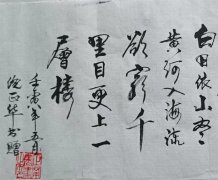 白日依山尽
黄河入海流
欲穷千
里目更上一
层楼
壬寅年五月